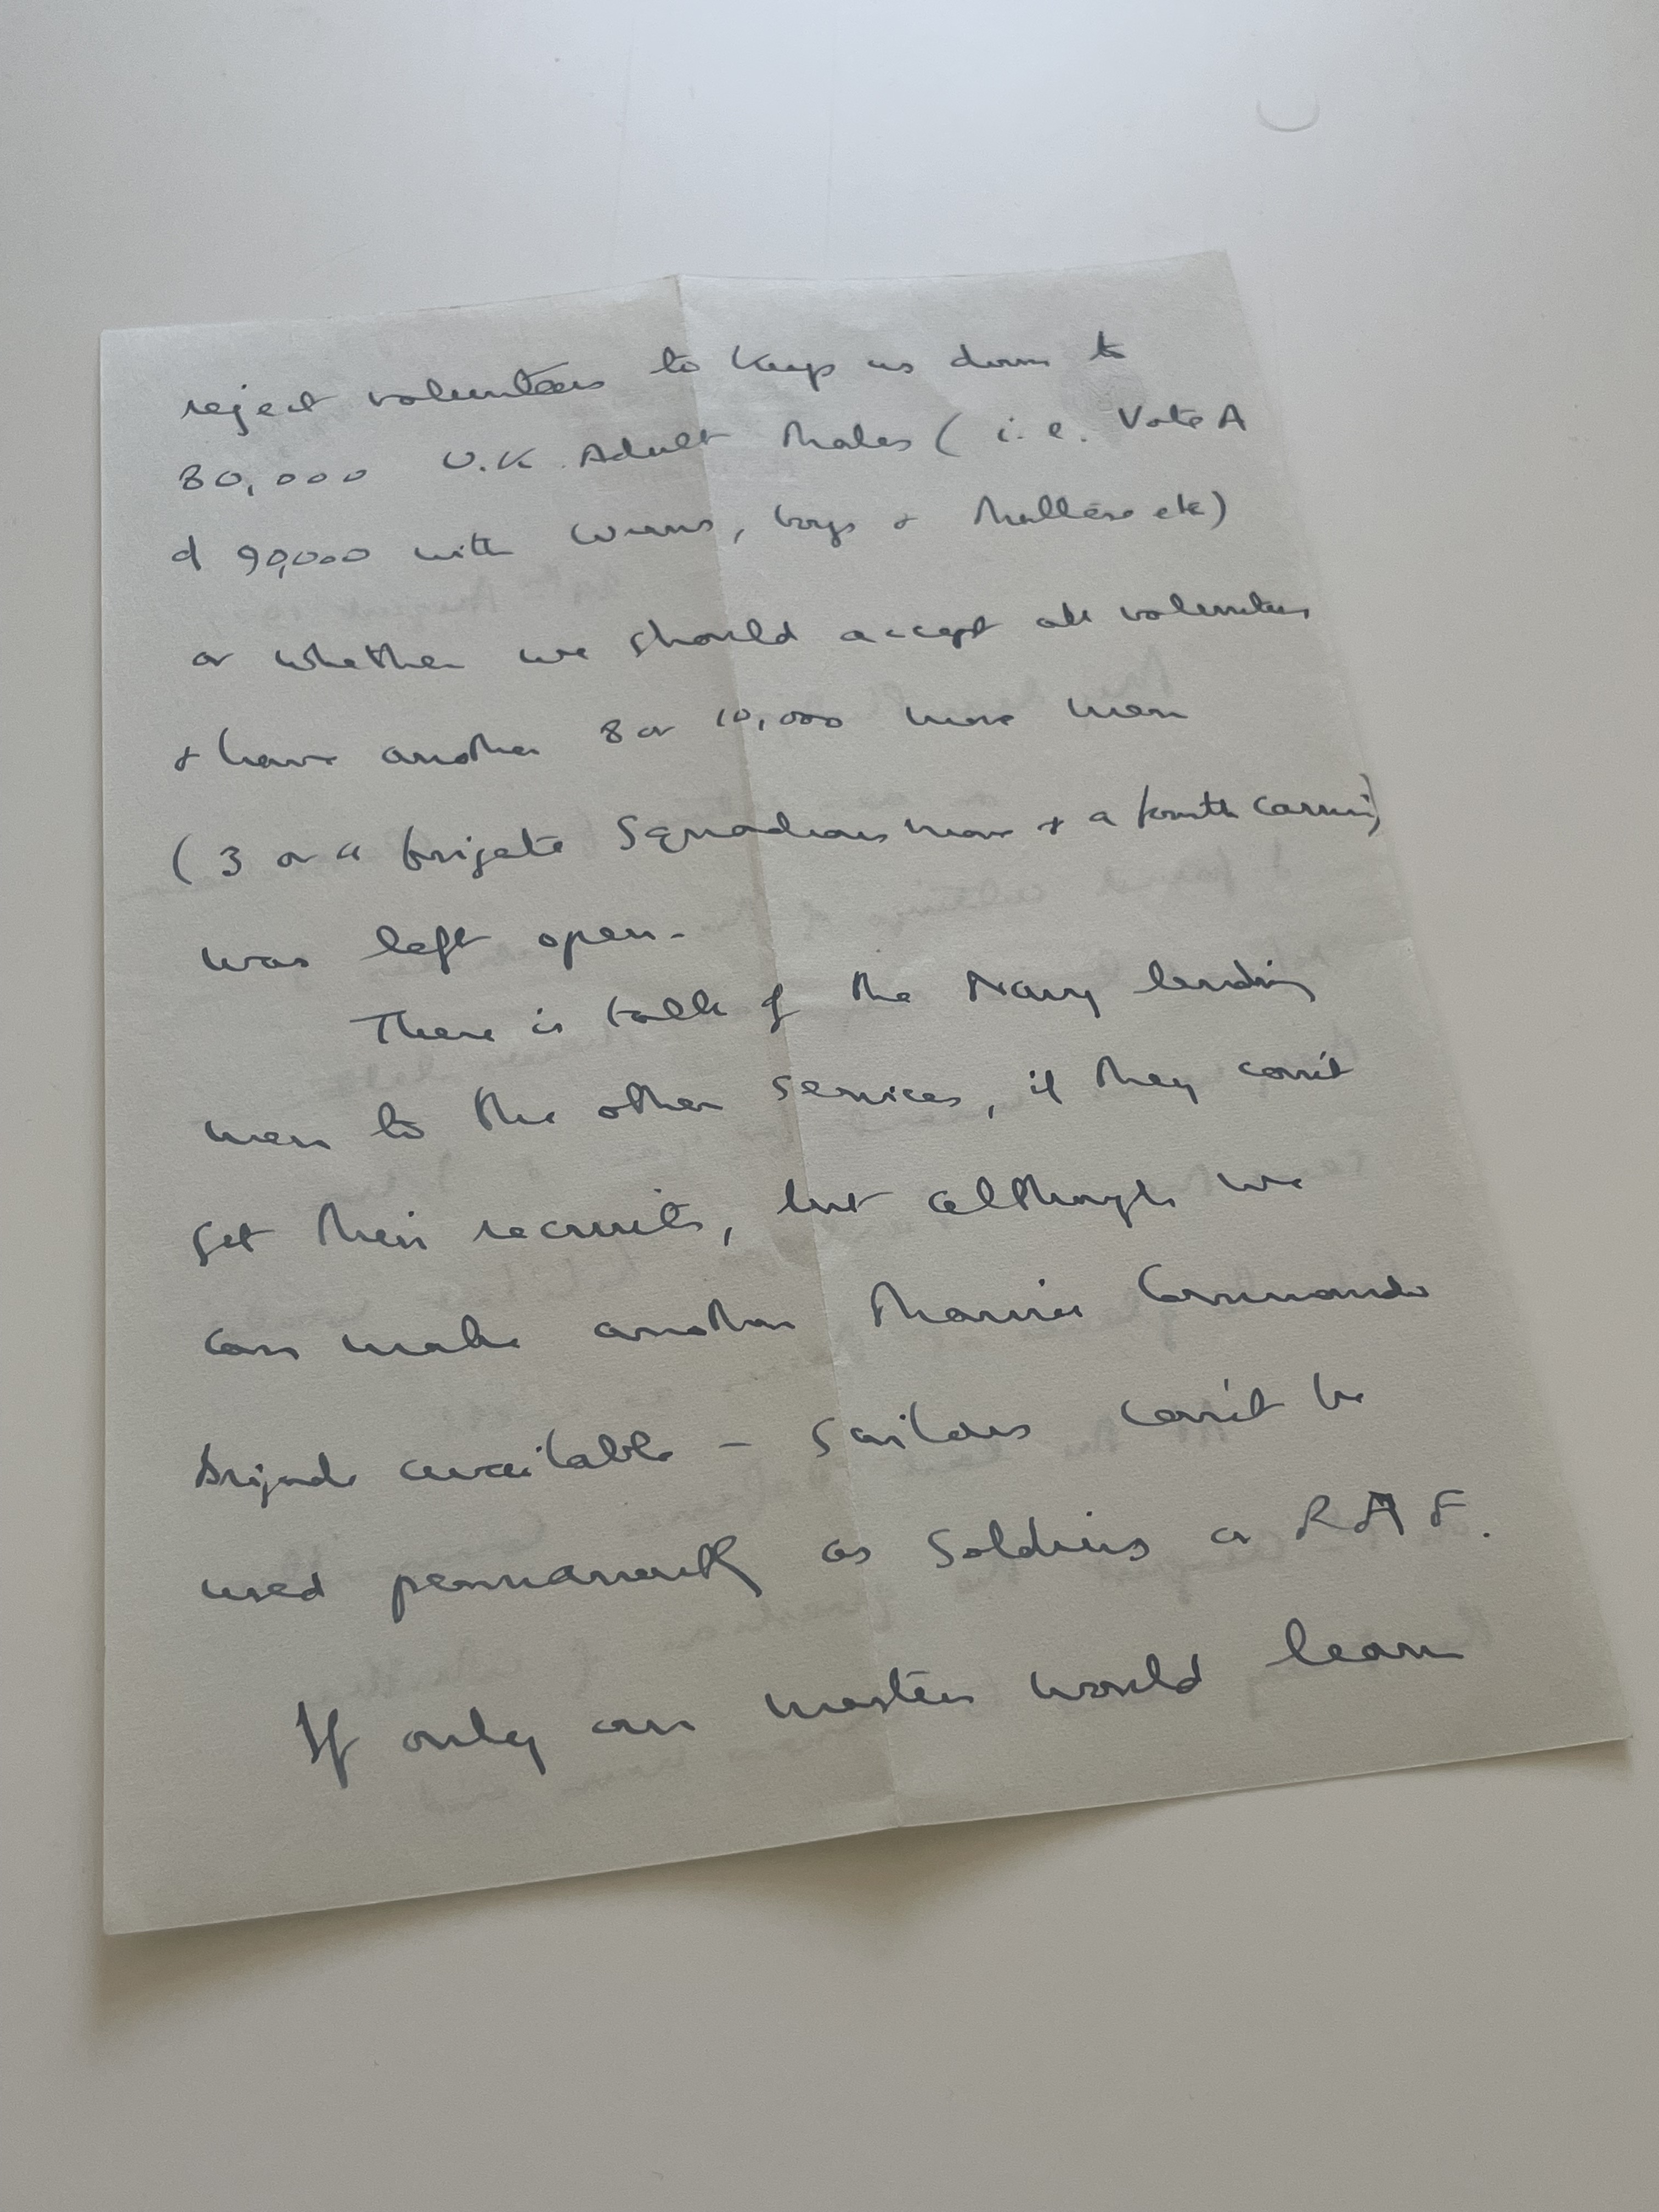 reject volunteers to keep us down to
80,000 U.K. Adult Males (i.e. Vote A
of 90,000 with Wrens, boys + Maltese etc)
or whether we should accept all volunteers
+ have another 8 or 10,000 more men
(3 or 4 frigate Squadrons more + a fourth carrier)
was left open.
There is talk of the Navy lending
men to the other services, if they can't
get their recruits, but although we
can make another Marine Commando
Brigade available – Sailors can't be
used permanently as Soldiers or R A F.
If only our masters would learn